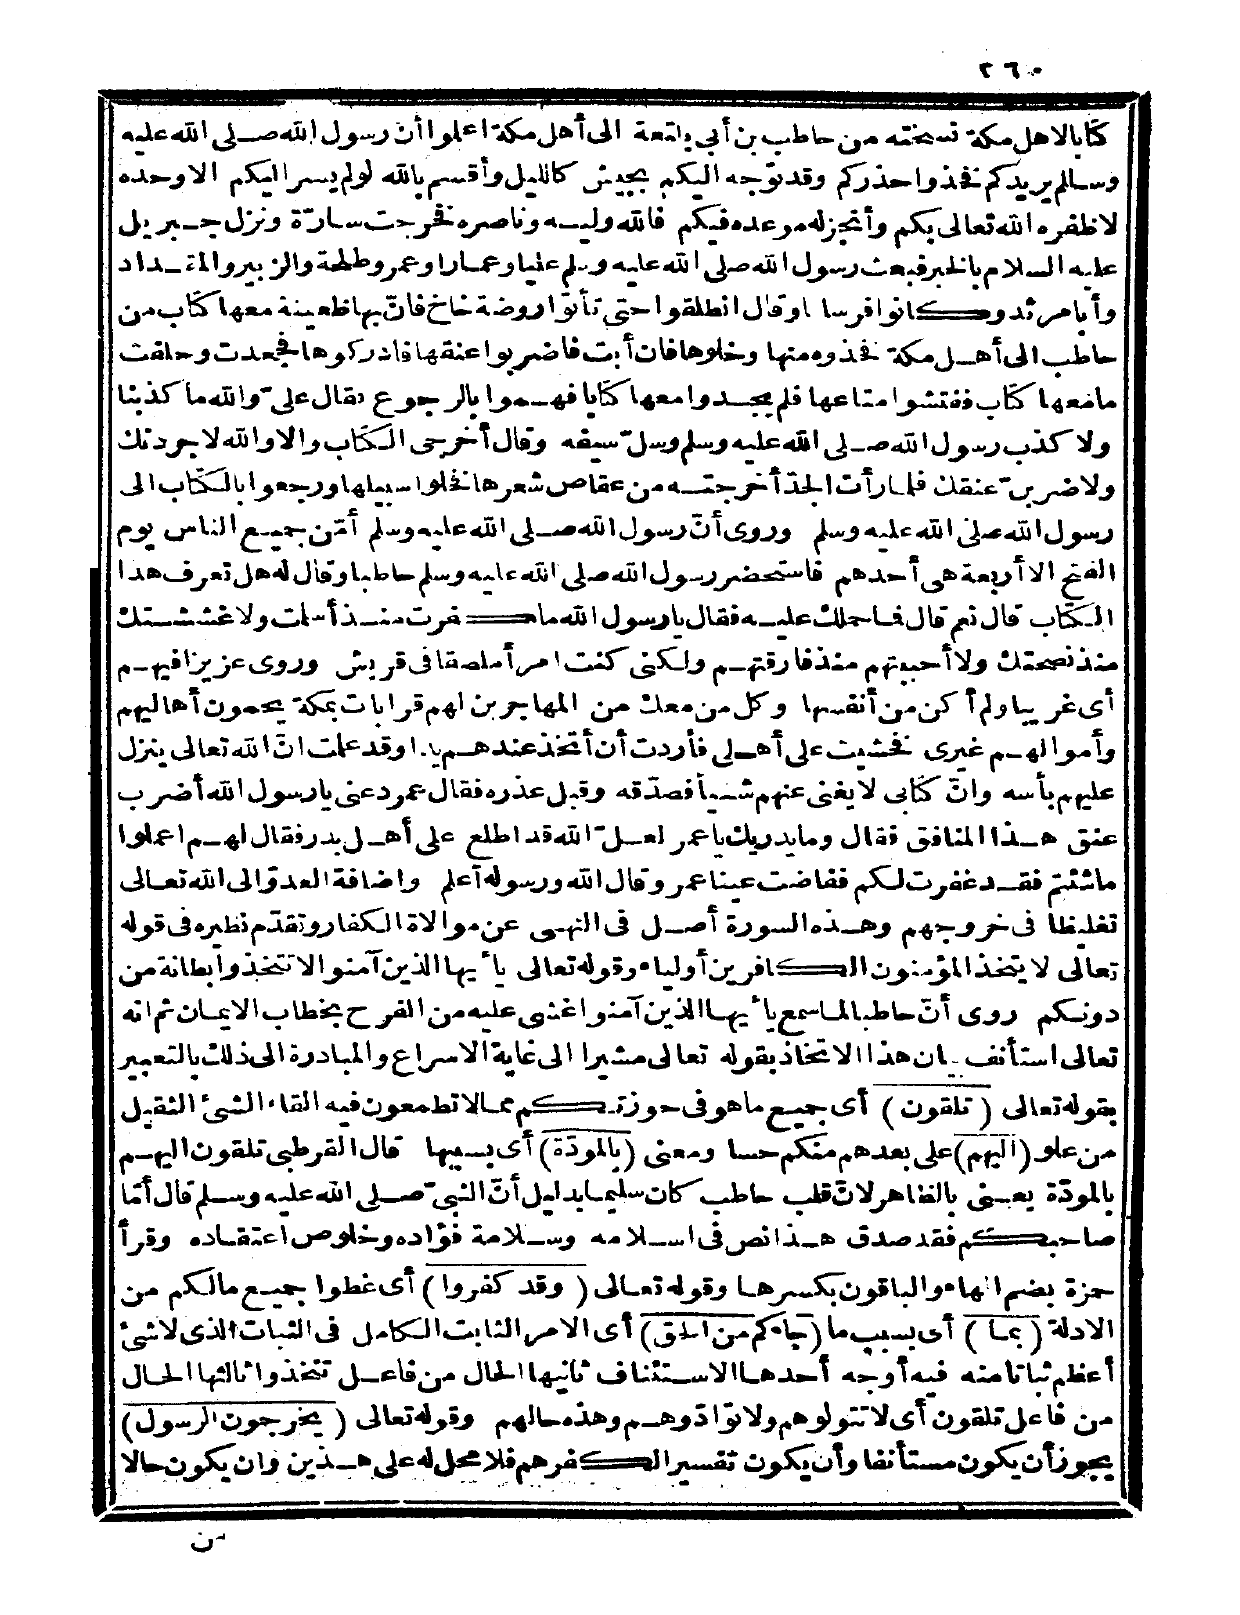 ٢٦٠
كتابا لاهل مكة نسخته من حاطب بن أبي بلتعة الى أهل مكة اعلموا أن رسول الله صلى الله عليه
وسلم يريدكم فخذوا حذركم وقد توجه اليكم بجيش كالليل وأقسم بالله لو لم يسر اليكم الا وحده
لاظفره الله تعالى بكم وأنجز له موعده فيكم فالله وليه وناصره فخرجت سارّة ونزل جبريل
عليه السلام بالخبر فبعث رسول الله صلى الله عليه وسلم عليا وعمارا وعمر وطلحة والزبير والمقداد
وأبا مرثد وكانوا فرسانا وقال انطلقوا حتى تأتوا روضة خاخ فانّ بها ظعينة معها كتاب من
حاطب الى أهل مكة فخذوه منها وخلوها فان أبت فاضربوا عنقها فادركوها فجحدت وحلفت
ما معها كتاب ففتشوا متاعها فلم يجدوا معها كتابا فهموا بالرجوع فقال علىّ والله ما كذبنا
ولا كذب رسول الله صلى الله عليه وسلم وسلّ سيفه وقال أخرجى الكتاب والا والله لاجردنك
ولاضربنّ عنقك فلما رأت الجدّ أخرجته من عقاص شعرها فخلوا سبيلها ورجعوا بالكتاب الى
رسول الله صلى الله عليه وسلم وروى أنّ رسول الله صلى الله عليه وسلم أمّن جميع الناس يوم
الفتح الا أربعة هى أحدهم فاستحضر رسول الله صلى الله عليه وسلم حاطبا وقال له هل تعرف هذا
الكتاب قال نعم قال فما حملك عليه فقال يا رسول الله ما كفرت منذ أسلمت ولا غششتك
منذ نصحتك ولا أحببتهم منذ فارقتهم ولكنى كنت امرأ ملصقا فى قريش وروى عزيزا فيهم
أى غريبا ولم أكن من أنفسها وكل من معك من المهاجرين لهم قرابات بمكة يحمون أهاليهم
وأموالهم غيرى فخشيت على أهلى فأردت أن أتخذ عندهم يدا وقد علمت انّ الله تعالى ينزل
عليهم بأسه وانّ كتابى لا يغنى عنهم شيأ فصدّقه وقبل عذره فقال عمر دعنى يا رسول الله أضرب
عنق هذا المنافق فقال وما يدريك يا عمر لعلّ الله قد اطلع على أهل بدر فقال لهم اعملوا
ما شئتم فقد غفرت لكم ففاضت عينا عمر وقال الله ورسوله أعلم واضافة العدوّ الى الله تعالى
تغليظا فى خروجهم وهذه السورة أصل فى النهى عن موالاة الكفار وتقدّم نظيره فى قوله
تعالى لا يتخذ المؤمنون الكافرين أولياء وقوله تعالى يا أيها الذين آمنوا لا تتخذوا بطانة من
دونكم روى أنّ حاطبا لما سمع يا أيها الذين آمنوا غشى عليه من الفرح بخطاب الايمان ثم انه
تعالى استأنف بيان هذا الاتخاذ بقوله تعالى مشيرا الى غاية الاسراع والمبادرة الى ذلك بالتعبير
بقوله تعالى (تلقون) أى جميع ما هو فى حوزتكم مما لا تطمعون فيه القاء الشئ الثقيل
من علو (اليهم) على بعدهم منكم حسا ومعنى (بالمودّة) أى بسببها قال القرطبى تلقون اليهم
بالمودّة يعنى بالظاهر لانّ قلب حاطب كان سليما بدليل أنّ النبىّ صلى الله عليه وسلم قال أمّا
صاحبكم فقد صدق هذا نص فى اسلامه وسلامة فؤاده وخلوص اعتقاده وقرأ
حمزة بضم الهاء والباقون بكسرها وقوله تعالى (وقد كفروا) أى غطوا جميع مالكم من
الادلة (بما) أى بسبب ما (جاءكم من الحق) أى الامر الثابت الكامل فى الثبات الذى لا شئ
أعظم ثباتا منه فيه أوجه أحدها الاستئناف ثانيها الحال من فاعل تتخذوا ثالثها الحال
من فاعل تلقون أى لا تتولوهم ولا توادّوهم وهذه حالهم وقوله تعالى (يخرجون الرسول)
يجوز أن يكون مستأنفا وأن يكون تفسيرا لكفرهم فلا محل له على هذين وان يكون حالا
من